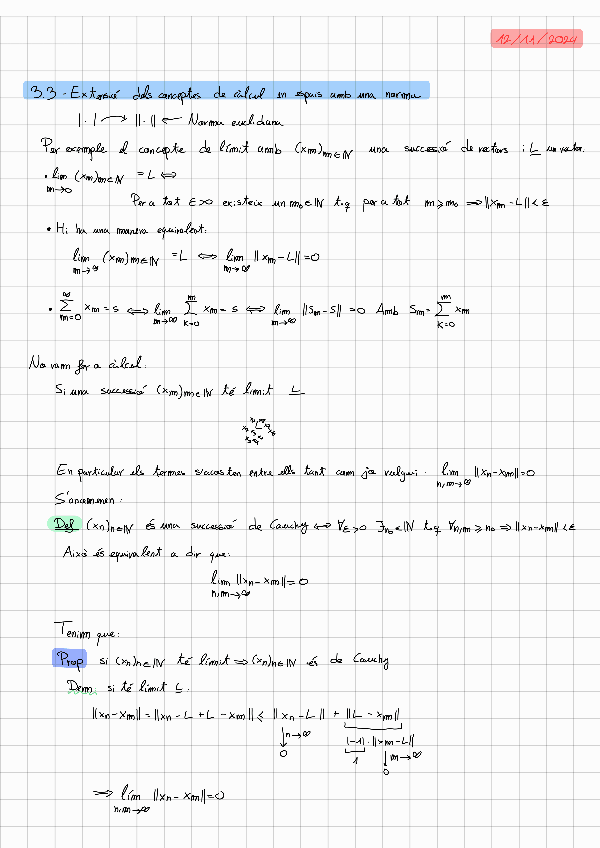 12/11/2024
3.3 - Extensió dels conceptes de càlcul en espais amb una norma
|·| → ||·|| ← Norma euclidiana
Per exemple el concepte de límit amb (xm)m∈ℕ una successió de vectors i L un vector.
• lim (xm)m∈ℕ = L ⟺
m→0
Per a tot ε>0 existeix un m₀∈ℕ t.q per a tot m ≥ m₀ ⟹ ||xm - L|| < ε
• Hi ha una manera equivalent:
lim (xm)m∈ℕ = L ⟺ lim ||xm - L|| = 0
m→∞ m→∞
• ∞∑m=0 xm = s ⟺ lim m→∞ m∑k=0 xm = s ⟺ lim m→∞ ||Sm - S|| = 0 Amb Sm = m∑k=0 xm
No vam fer a càlcul:
Si una successió (xm)m∈ℕ té límit L
En particular els termes s'acosten entre ells tant com jo vulgui. lim ||xn - xm|| = 0
n,m→∞
S'anomenen:
Def (xn)n∈ℕ és una successió de Cauchy ⟺ ∀ε>0 ∃n₀∈ℕ t.q ∀n,m ≥ n₀ ⟹ ||xn - xm|| < ε
Això és equivalent a dir que:
lim ||xn - xm|| = 0
n,m→∞
Tenim que:
Prop si (xn)n∈ℕ té límit ⟹ (xn)n∈ℕ és de Cauchy
Dem si té límit L.
||xn - xm|| = ||xn - L + L - xm|| ≤ ||xn - L|| + ||L - xm||
↓ n→∞ |-1|·||xm - L||
0 1 ↓ m→∞
0
⟹ lim ||xn - xm|| = 0
n,m→∞